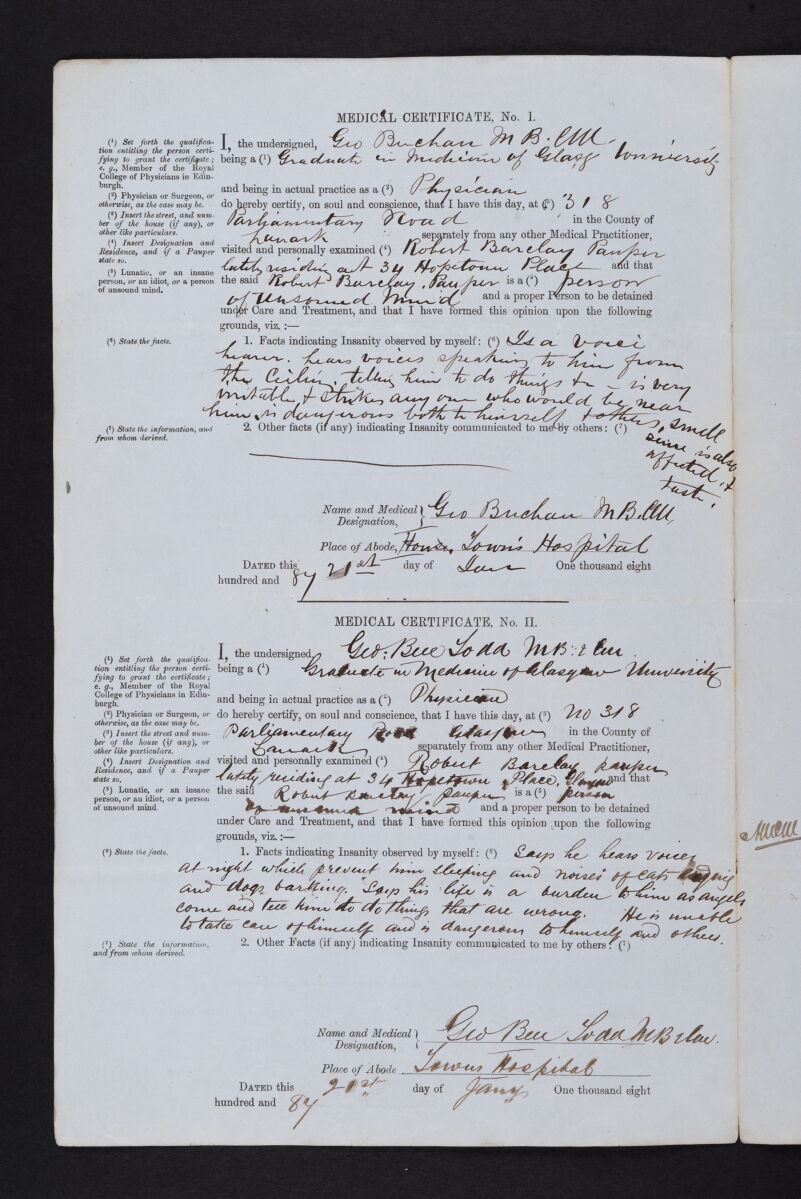 MEDICAL CERTIFICATE, No. I.
(1) Set forth the qualification entitling the person certifying to grant the certificate; e. g., Member of the Royal College of Physicians in Edinburgh.
(2) Physician or Surgeon, or otherwise, as the case may be.
(3) Insert the street, and number of the house (if any), or other like particulars.
(4) Insert Designation and Residence, and if a Pauper state so.
(5) Lunatic, or an insane person, or an idiot, or a person of unsound mind.
(6) State the facts.
(7) State the information, and from whom derived.
I, the undersigned, Geo Buchan M B. CM.
being a (1) Graduate in Medicine of Glasg University
and being in actual practice as a (2) Physician
do hereby certify, on soul and conscience, that I have this day, at (3) 318
Parliamentary Road in the County of
Lanark separately from any other Medical Practitioner,
visited and personally examined (4) Robert Barclay Pauper
lately residing at 34 Hopetown Place and that
the said Robert Barclay, Pauper is a (5) person
of Unsound Mind and a proper Person to be detained
under Care and Treatment, and that I have formed this opinion upon the following
grounds, viz. :—
1. Facts indicating Insanity observed by myself: (6) Is a voice
hearer. hears voices speaking to him from
the Ceiling, telling him to do things &c - is very
irritable & strikes any one who would be near
him, is dangerous both to himself & others, smell
sense is also
affected, &
taste.
2. Other facts (if any) indicating Insanity communicated to me by others: (7)
Name and Medical Designation, Geo Buchan M.B.CM,
Place of Abode, House, Town's Hospital
DATED this 21st day of Jan One thousand eight
hundred and 87
MEDICAL CERTIFICATE, No. II.
(1) Set forth the qualification entitling the person certifying to grant the certificate; e. g., Member of the Royal College of Physicians in Edinburgh.
(2) Physician or Surgeon, or otherwise, as the case may be.
(3) Insert the street and number of the house (if any), or other like particulars.
(4) Insert Designation and Residence, and if a Pauper state so.
(5) Lunatic, or an insane person, or an idiot, or a person of unsound mind
(6) State the facts.
(7) State the information, and from whom derived.
I, the undersigned Geo: Bell Todd MB: & CM.
being a (1) Graduate in Medicine of Glasgow University
and being in actual practice as a (2) Physician
do hereby certify, on soul and conscience, that I have this day, at (3) No 318
Parliamentary Road Glasgow in the County of
Lanark separately from any other Medical Practitioner,
visited and personally examined (4) Robert Barclay pauper
lately residing at 34 Hopetown Place, Glasgow and that
the said Robert Barclay pauper is a (5) person
of unsound mind and a proper person to be detained
under Care and Treatment, and that I have formed this opinion upon the following
grounds, viz. :—
1. Facts indicating Insanity observed by myself: (6) Says he hears voices
at night which prevent him sleeping and noises of cats
and dogs barking. Says his life is a burden to him as angels
come and tell him to do things that are wrong. He is unable
to take care of himself and is dangerous to himself and others.
2. Other Facts (if any) indicating Insanity communicated to me by others: (7)
Name and Medical Designation, Geo Bell Todd MB & CM.
Place of Abode Towns Hospital
DATED this 21st day of Jany One thousand eight
hundred and 87